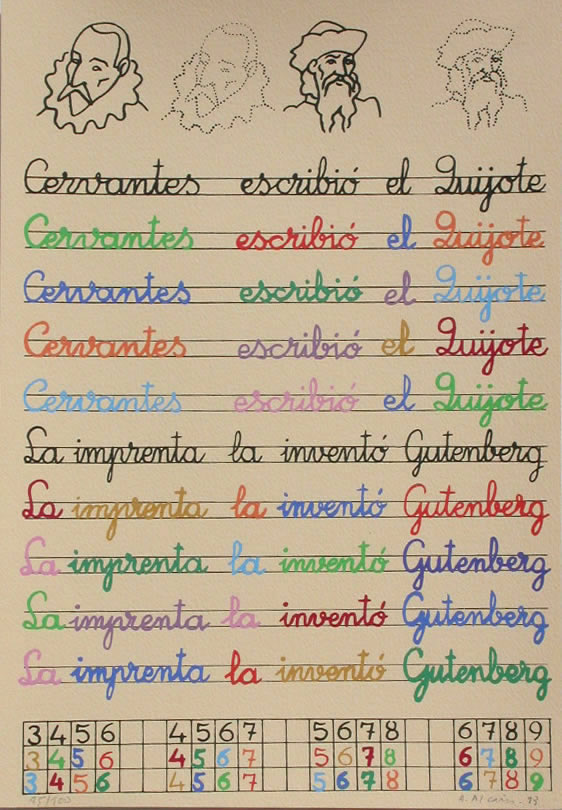 Cervantes escribió el Quijote
Cervantes escribió el Quijote
Cervantes escribió el Quijote
Cervantes escribió el Quijote
Cervantes escribió el Quijote
La imprenta la inventó Gutenberg
La imprenta la inventó Gutenberg
La imprenta la inventó Gutenberg
La imprenta la inventó Gutenberg
La imprenta la inventó Gutenberg
3 4 5 6 4 5 6 7 5 6 7 8 6 7 8 9
3 4 5 6 4 5 6 7 5 6 7 8 6 7 8 9
3 4 5 6 4 5 6 7 5 6 7 8 6 7 8 9